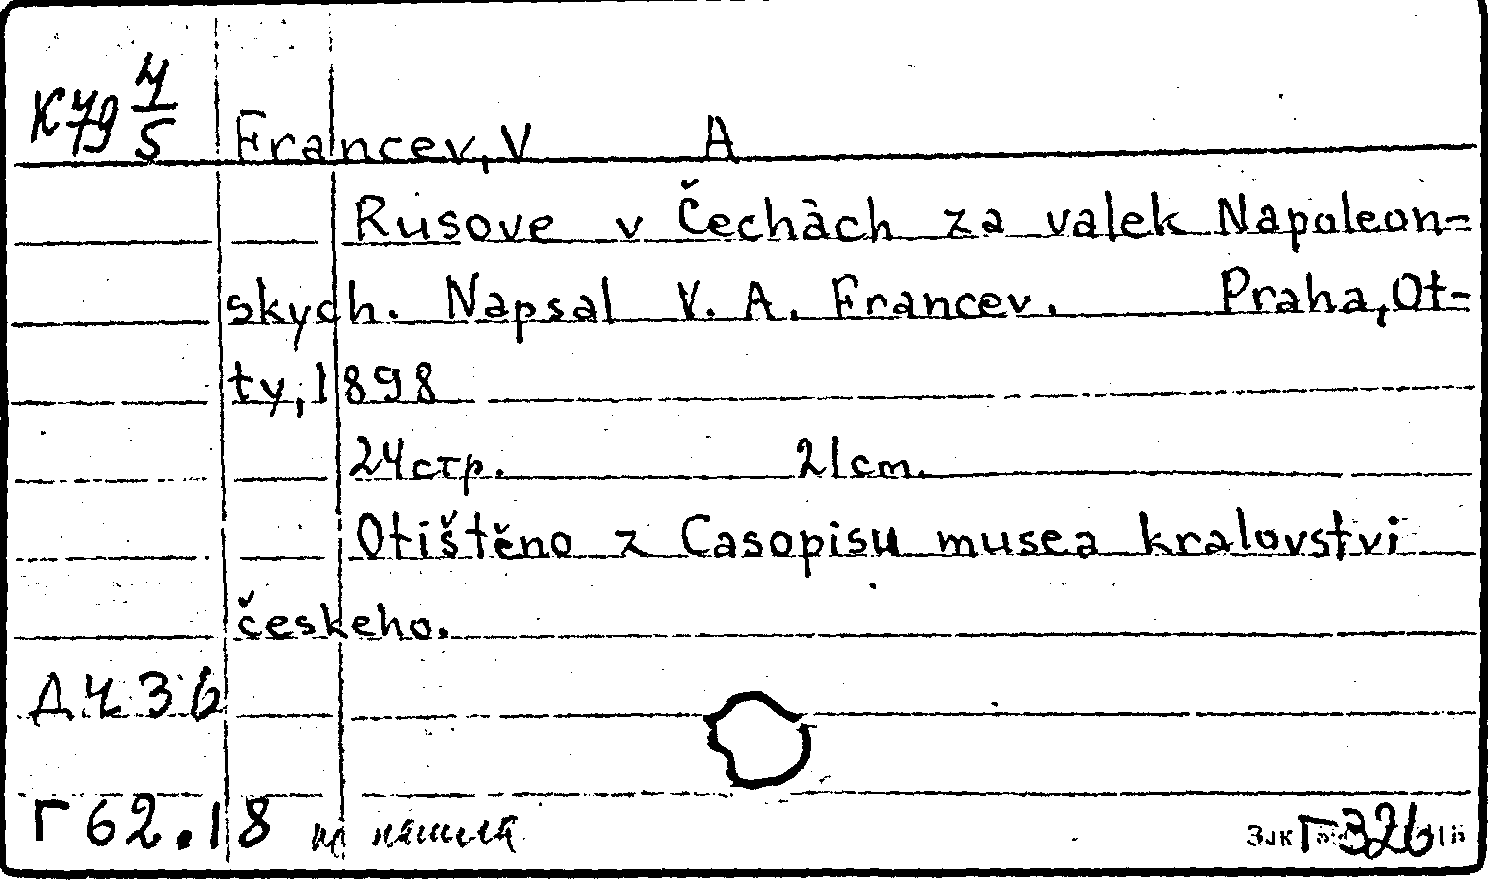 К79 4/5
Francev, V A
Rusove v Čechách za valek Napoleon-
skych. Napsal V. A. Francev. Praha, Ot-
ty, 1898
24 стр. 21 cm.
Otištěno z Casopisu musea kralovstvi
českeho.
Д436
Г62.18
Зак Г326